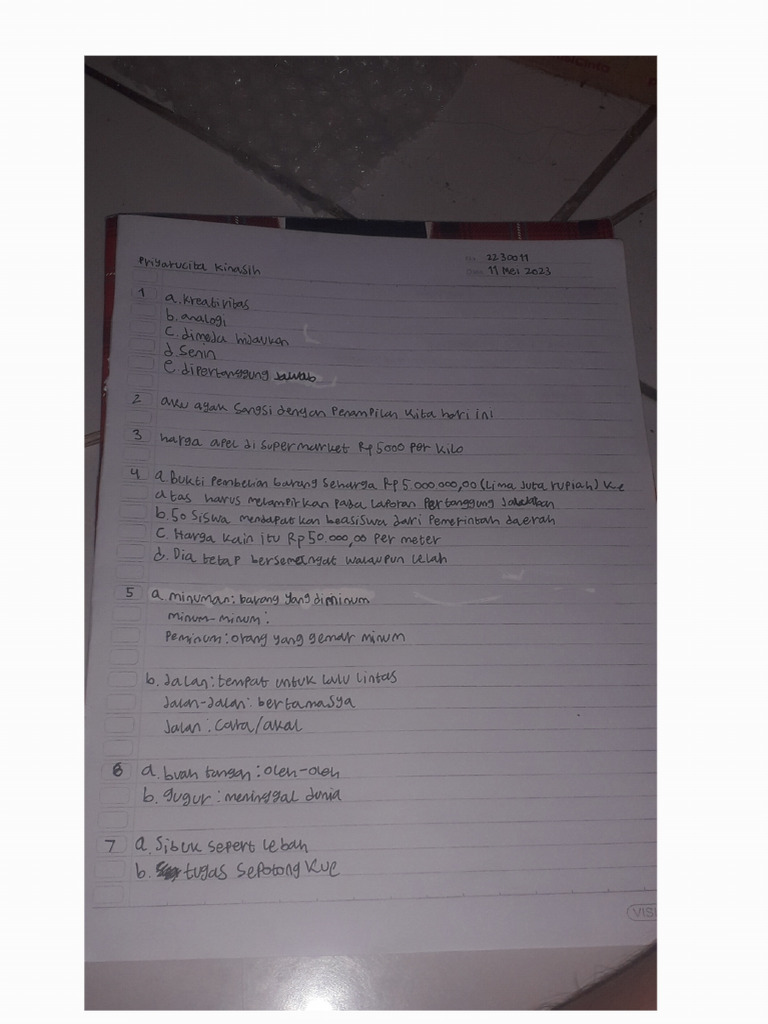 Priyarucita Kinasih
No. 2230011
Date 11 Mei 2023
1 a. Kreativitas
b. analogi
c. dimeja hijaukan
d Senin
e. dipertanggung jawab
2 aku agak sangsi dengan Penampilan kita hari ini
3 harga apel di supermarket Rp 5000 per kilo
4 a. Bukti Pembelian barang seharga Rp 5.000.000,00 (Lima Juta rupiah) ke
atas harus melampirkan pada laporan Pertanggung Jawaban
b. 50 Siswa mendapatkan beasiswa dari Pemerintah daerah
C. Harga kain itu Rp 50.000,00 Per meter
d. Dia tetap bersemangat walaupun lelah
5 a. minuman : barang yang diminum
minum-minum :
Peminum : orang yang gemar minum
b. Jalan : tempat untuk lalu lintas
Jalan-Jalan : bertamasya
Jalan : Cara/akal
6 a. buah tangan : oleh-oleh
b. gugur : meninggal dunia
7 a. Sibuk sepert lebah
b. tugas sepotong kue
VISI